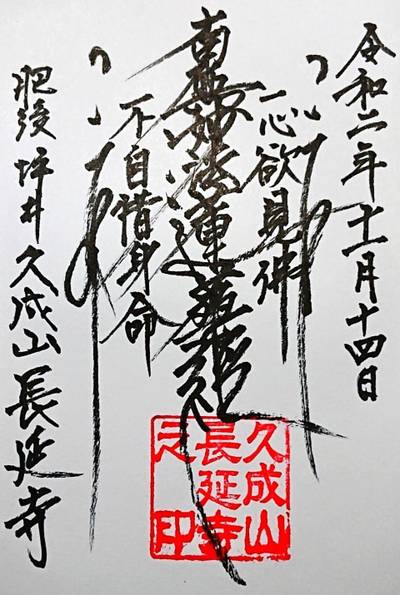 令和二年十一月十四日
一心欲見佛
南無妙法蓮華経
不自惜身命
肥後坪井久成山長延寺
久成山
長延寺
之印